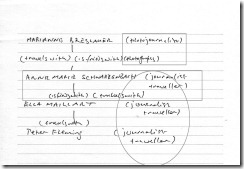 MARIANNE BRESLAUER (photojournalist)
(travels with) (is friends with) (photographs)
ANNE MARIE SCHWARZENBACH (journalist
traveller)
(is friends with) (travels with)
ELLA MAILLART (journalist
traveller)
(travels with)
Peter Fleming (journalist
traveller)